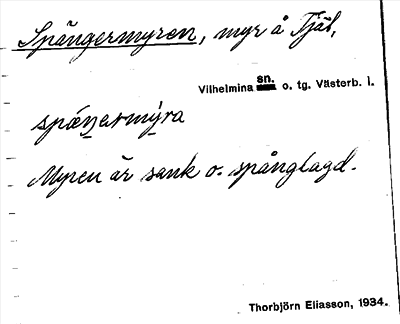 Spångermyren, myr å Tjäl,
Vilhelmina sn. o. tg. Västerb. l.
spǽŋarmýra
Myren är sank o. spånglagd.
Thorbjörn Eliasson, 1934.